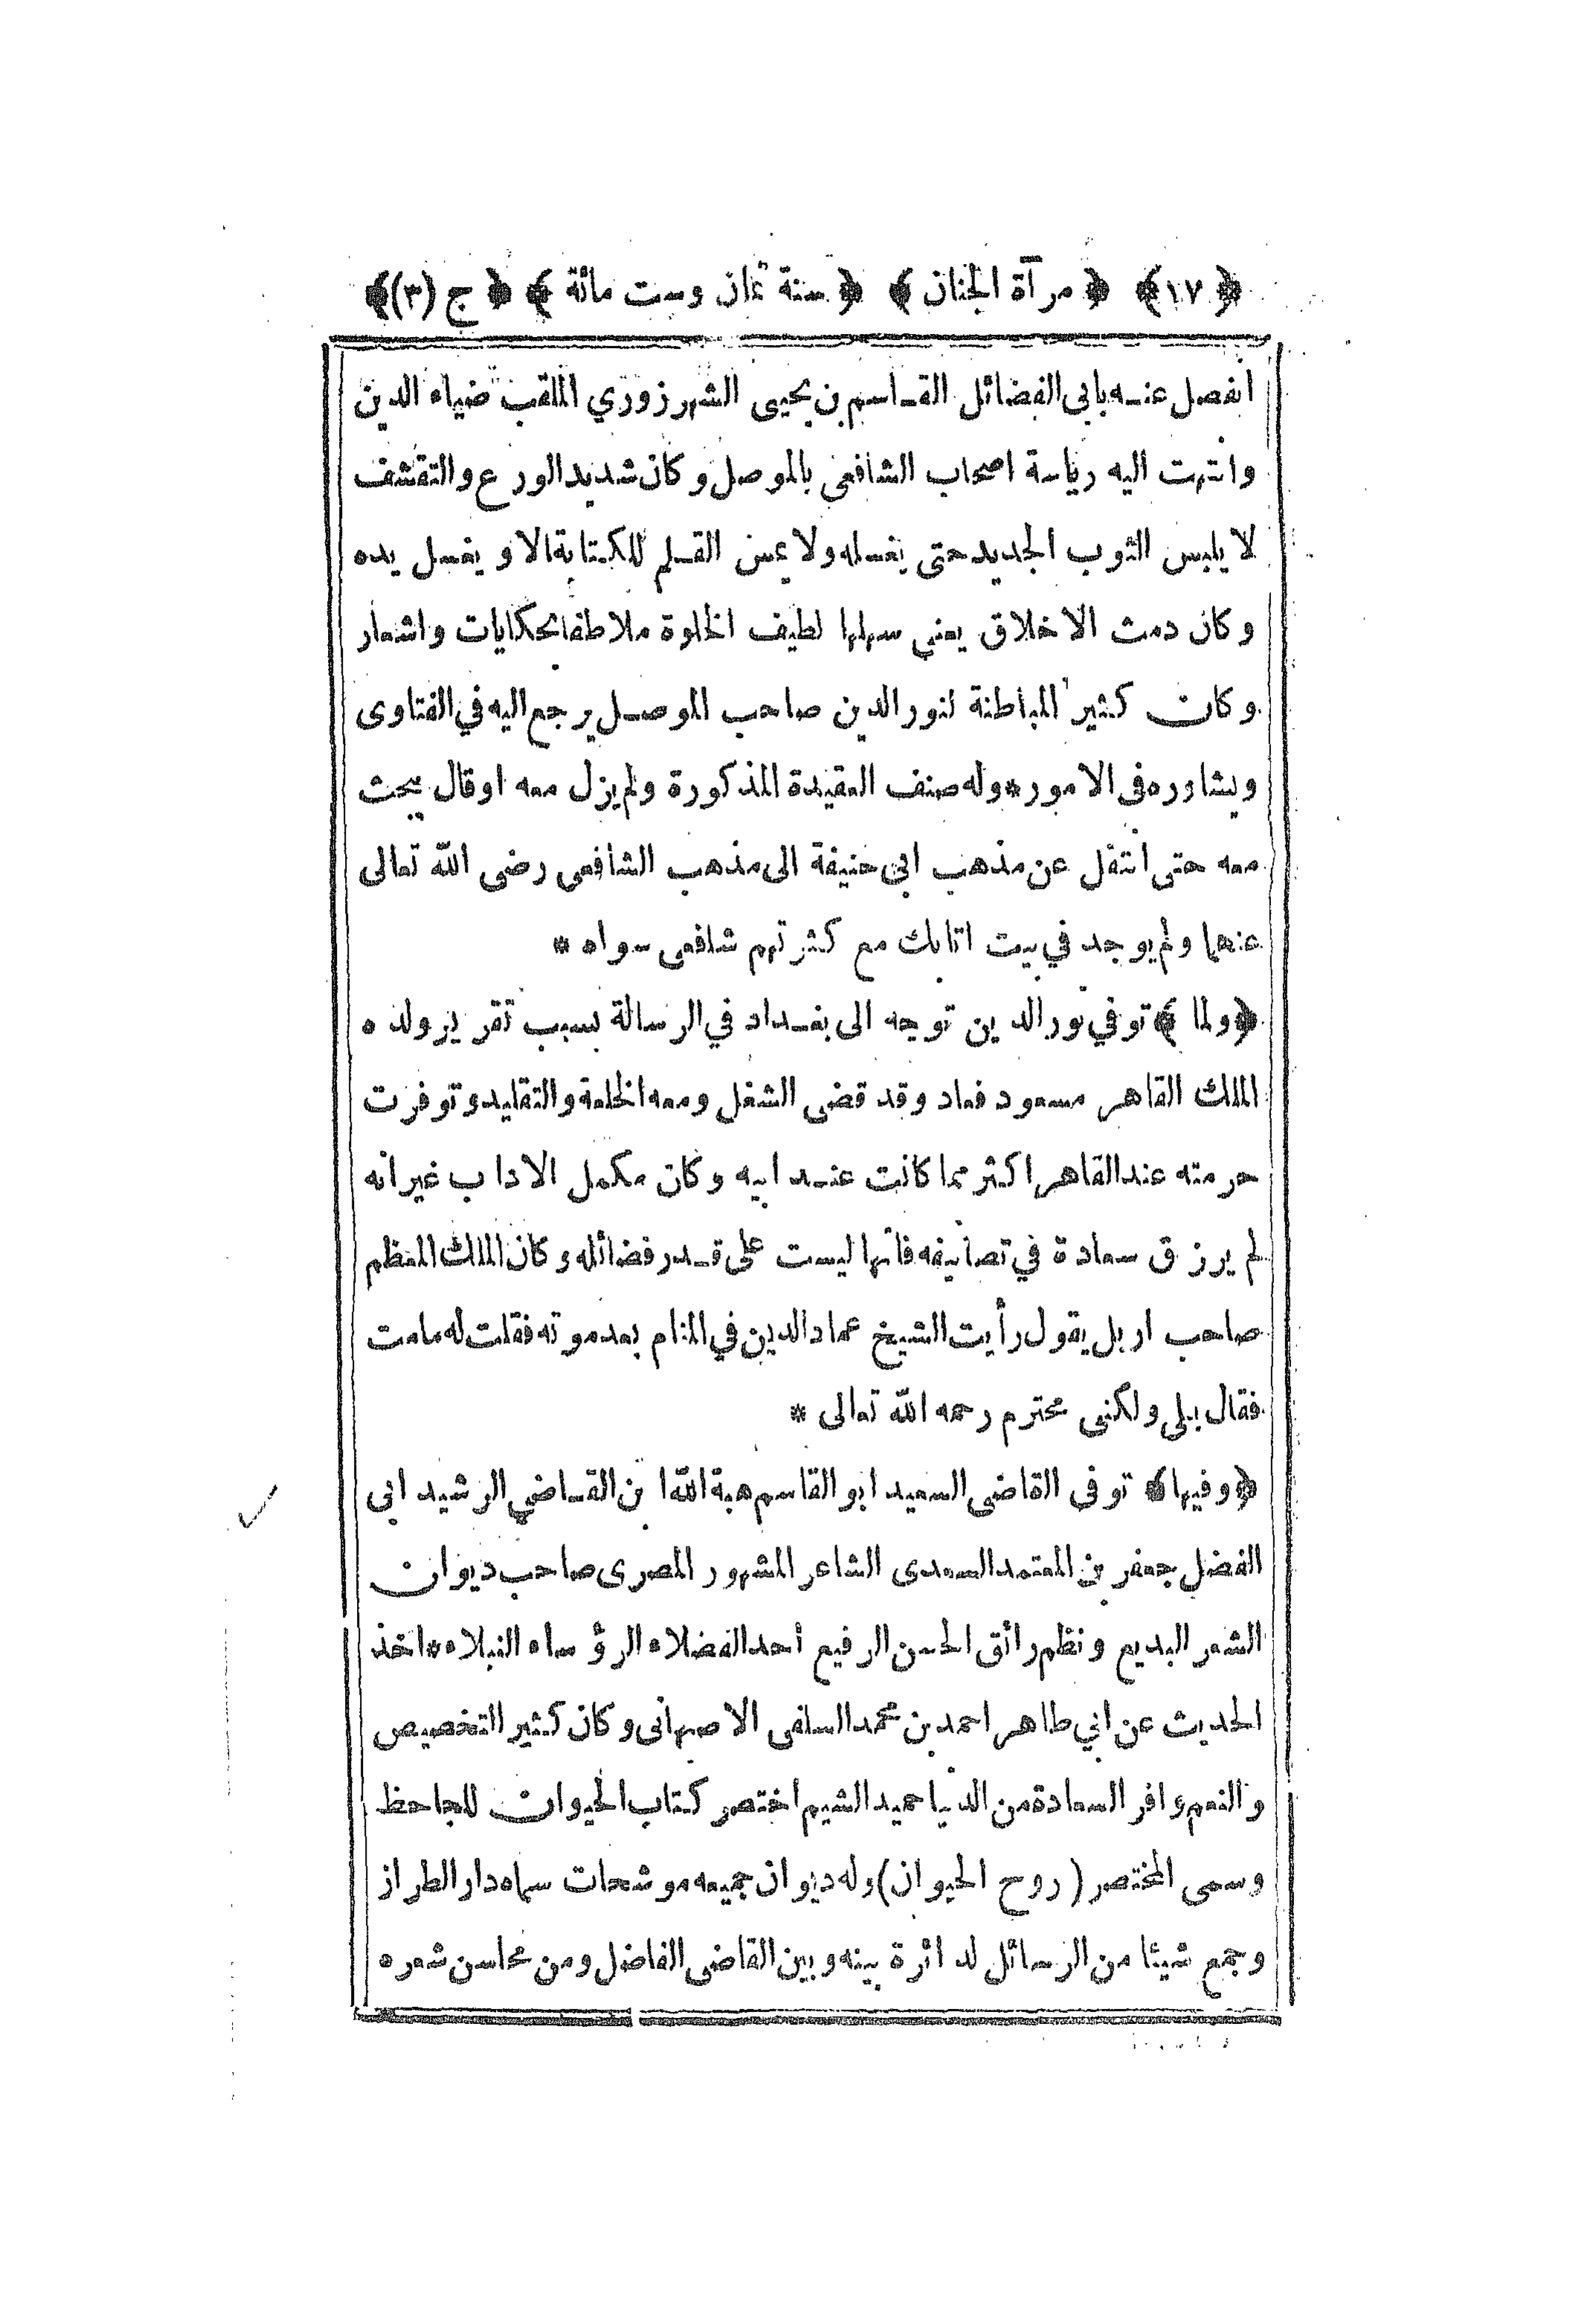 ﴿١٧﴾ ﴿ مرآة الجنان ﴾ ﴿ سنة ثمان وست مائة ﴾ ﴿ ج (٣)﴾
انفصل عنه بابى الفضائل القاسم بن يحيى الشهرزوري الملقب ضياء الدين
وانتهت اليه رياسة اصحاب الشافعى بالموصل وكان شديد الورع والتقشف
لا يلبس الثوب الجديد حتى يغسله ولا يمس القلم للكتابة الا ويغسل يده
وكان دمث الاخلاق يعنى سهلها لطيف الخلوة ملاطفا بحكايات واشعار
وكان كثير المباطنة لنور الدين صاحب الموصل يرجع اليه في الفتاوى
ويشاوره فى الامور * وله صنف العقيدة المذكورة ولم يزل معه اوقال يبحث
معه حتى انتقل عن مذهب ابى حنيفة الى مذهب الشافعى رضى الله تعالى
عنهما ولم يوجد في بيت اتابك مع كثرتهم شافعى سواه *
﴿ولما﴾ توفي نور الدين توجه الى بغداد في الرسالة بسبب تقرير ولده
الملك القاهر مسعود فعاد وقد قضى الشغل ومعه الخلعة والتقليد وتوفرت
حرمته عند القاهر اكثر مما كانت عند ابيه وكان مكمل الاداب غير انه
لم يرزق سعادة في تصانيفه فانها ليست على قدر فضائله وكان الملك المعظم
صاحب اربل يقول رأيت الشيخ عماد الدين في المنام بعد موته فقلت له مامت
فقال بلى ولكنى محترم رحمه الله تعالى *
﴿وفيها﴾ توفى القاضى السعيد ابو القاسم هبة الله ابن القاضي الرشيد ابى
الفضل جعفر بن المعتمد السعدى الشاعر المشهور المصرى صاحب ديوان
الشعر البديع ونظم رائق الحسن الرفيع أحد الفضلاء الرؤساء النبلاء * اخذ
الحديث عن ابي طاهر احمد بن محمد السلفى الاصبهانى وكان كثير التخصيص
والنعم وافر السعادة من الدنيا حميد الشيم اختصر كتاب الحيوان للجاحظ
وسمى المختصر (روح الحيوان) وله ديوان جميعه موشحات سماه دار الطراز
وجمع شيئا من الرسائل لدائرة بينه وبين القاضى الفاضل ومن محاسن شعره